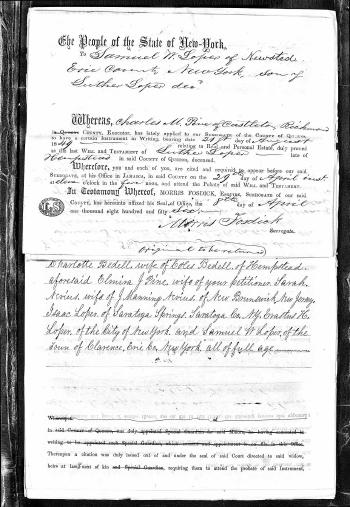 The People of the State of New-York,
To Samuel W. Loper of Newsted
Erie County New York, son of
Luther Loper decd
Whereas, Charles M. Pine of Castleton Richmond
in Queens County, Executor, has lately applied to our Surrogate of the County of Queens
to have a certain Instrument in Writing, bearing date 21st day of August
1849 relating to Real and Personal Estate, duly proved
as the last Will and Testament of Luther Loper late of
Hempstead in said County of Queens, deceased.
Wherefore, you and each of you, are cited and required to appear before our said
Surrogate, at his Office in Jamaica, in said County on the 29 day of April inst
at eleven o'clock in the fore noon, and attend the Probate of said Will and Testament.
In Testimony Whereof, Morris Fosdick, Esquire, Surrogate of our said
County, has hereunto affixed his Seal of Office, the 8th day of April
one thousand eight hundred and fifty Six.
Morris Fosdick
Surrogate.
original to be returned
Charlotte Bedell, wife of Coles Bedell, of Hempstead
aforesaid Elmira J Pine, wife of your petitioner, Sarah
Nevius, wife of J. Manning Nevius, of New Brunswick New Jersey,
Isaac Loper, of Saratoga Springs, Saratoga Co. N.Y. Erastus H.
Loper, of the City of New York, and Samuel W. Loper, of the
town of Clarence, Erie Co. New York all of full age
Whereupon,
in said County of Queens, was duly appointed Special Guardian for said Minors, he having consented in
writing to be appointed such Special Guardian, which consent and appointment is on file in this Office.
Thereupon a citation was duly issued out of and under the seal of said Court directed to said widow,
heirs at law, next of kin and Special Guardian, requiring them to attend the probate of said Instrument,